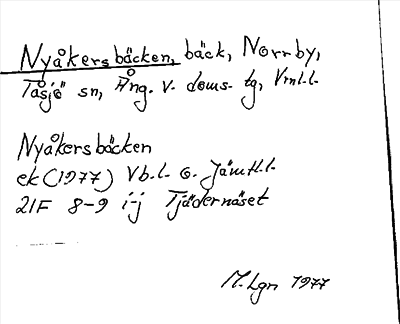 Nyåkersbäcken, bäck, Norrby,
Tåsjö sn, Ång. v. doms. lg, Vrnl.l.
Nyåkersbäcken
ek (1977) Vb.l. o. Jämtl.l.
21F 8-9 i-j Tjädernäset
M. Lgn 1977